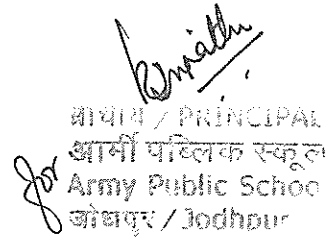 प्राचार्य / PRINCIPAL
आर्मी पब्लिक स्कूल
for Army Public Schoo
जोधपुर / Jodhpur